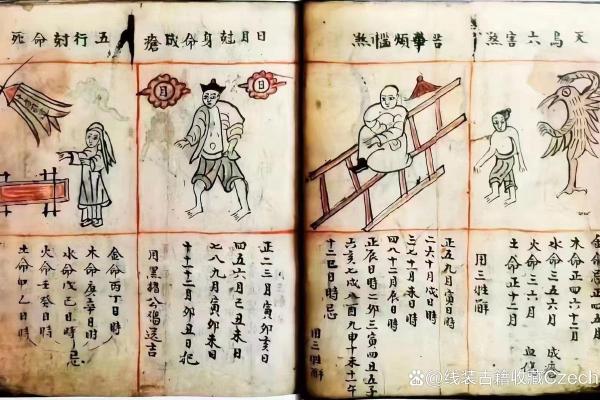 天烏六害煞
木命正四六十二月
水命三五六月 成瘡
火命三六月 血
土命正十一月
用三牲解
煩惱煞
正五九月寅日時
二六十月戌日時
三七十月未日時
四八十二月辰日時
正辰日時二卯三寅四丑五子
六亥七戌八酉九申十未十一午
十二巳日時忌
用三牲解
日月尅身命成瘡
日
月
正二三月寅卯亥日
四五六月己丑未日
七八九月寅卯未日
十十一十二月卯丑日把
用黑公送吉
五行射命死
金命丙丁日時
木命庚辛日時
水命戊己日時 忌
火命壬癸日時
土命甲乙日時
@线装古籍收藏Czech